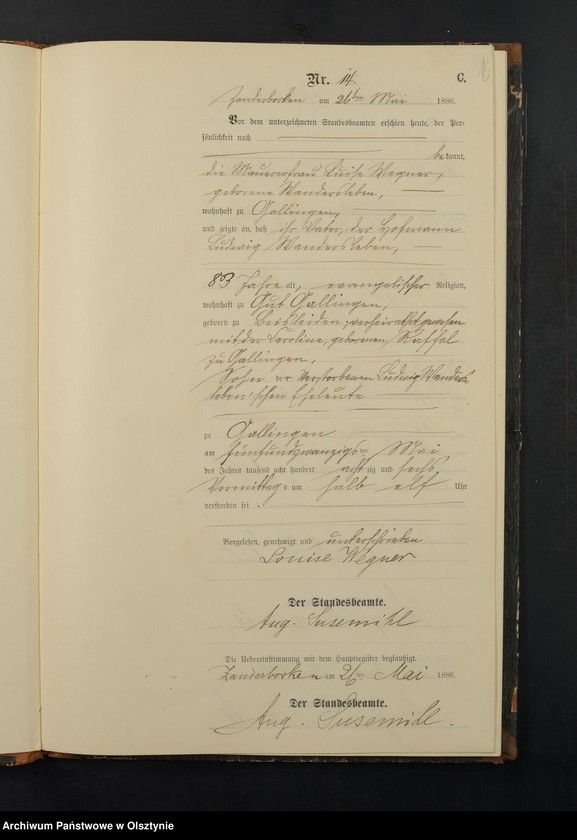 Nr. 14. C.
Zanderborken am 26ten Mai 1886.
Vor dem unterzeichneten Standesbeamten erschien heute, der Per-
sönlichkeit nach
bekannt,
die Maurerfrau Luise Wegner,
geborene Wandersleben,
wohnhaft zu Gallingen,
und zeigte an, daß ihr Vater, der Hofmann
Ludwig Wandersleben,
83 Jahre alt, evangelischer Religion,
wohnhaft zu Gut Gallingen,
geboren zu Beisleiden, verheirathet gewesen
mit der Caroline, geborenen Raffel
zu Gallingen,
Sohn der Verstorbenen Ludwig Wanders-
leben'schen Eheleute
zu Gallingen
am fünfundzwanzigsten Mai
des Jahres tausend acht hundert achtzig und sechs
Vormittags um halb elf Uhr
verstorben sei.
Vorgelesen, genehmigt und unterschrieben
Louise Wegner
Der Standesbeamte.
Aug. Susemihl
Die Uebereinstimmung mit dem Hauptregister beglaubigt.
Zanderborken am 26ten Mai 1886.
Der Standesbeamte.
Aug. Susemihl.
Archiwum Państwowe w Olsztynie